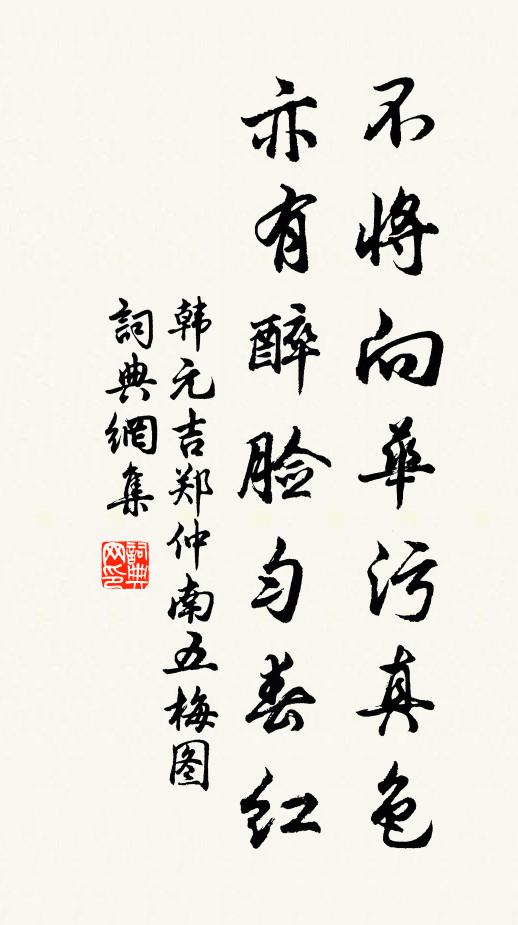 不将向華污真色
亦有醉脸匀春红
韩元吉郑仲南五梅图
詞典網集
詞典网印